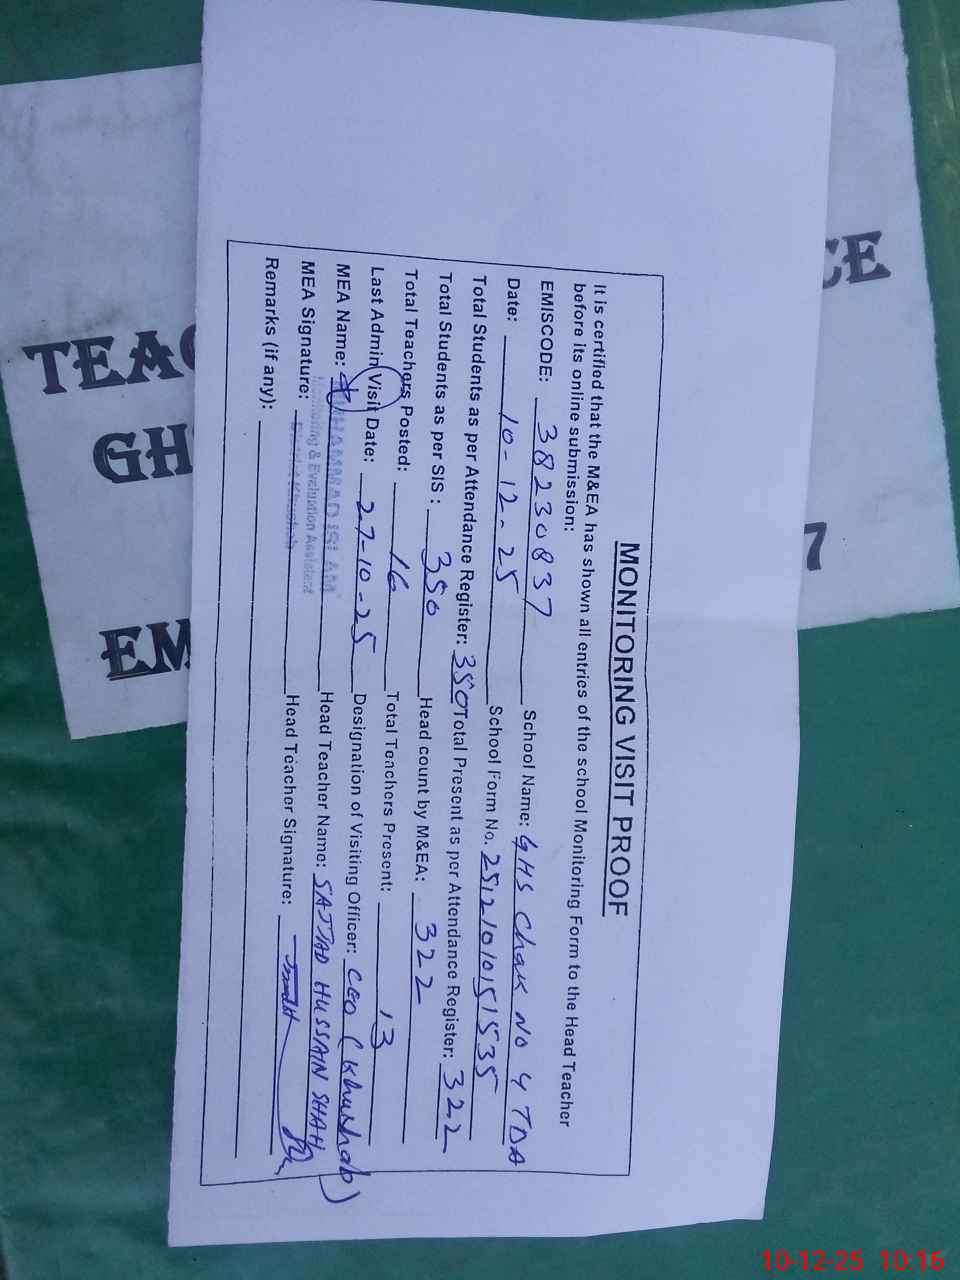 MONITORING VISIT PROOF
It is certified that the M&EA has shown all entries of the school Monitoring Form to the Head Teacher
before its online submission:
EMISCODE: 38230837 School Name: GHS Chak No 4 TDA
Date: 10-12-25 School Form No. 25121010151535
Total Students as per Attendance Register: 350 Total Present as per Attendance Register: 322
Total Students as per SIS : 350 Head count by M&EA: 322
Total Teachers Posted: 16 Total Teachers Present: 13
Last Admin Visit Date: 27-10-25 Designation of Visiting Officer: CEO (Khushab)
MEA Name: MUHAMMAD ISLAM Head Teacher Name: SAJJAD HUSSAIN SHAH
Monitoring & Evaluation Assistant
MEA Signature: District Khushab Head Teacher Signature:
Remarks (if any):
TEAC
CE
GH
7
EM
10-12-25 10:16